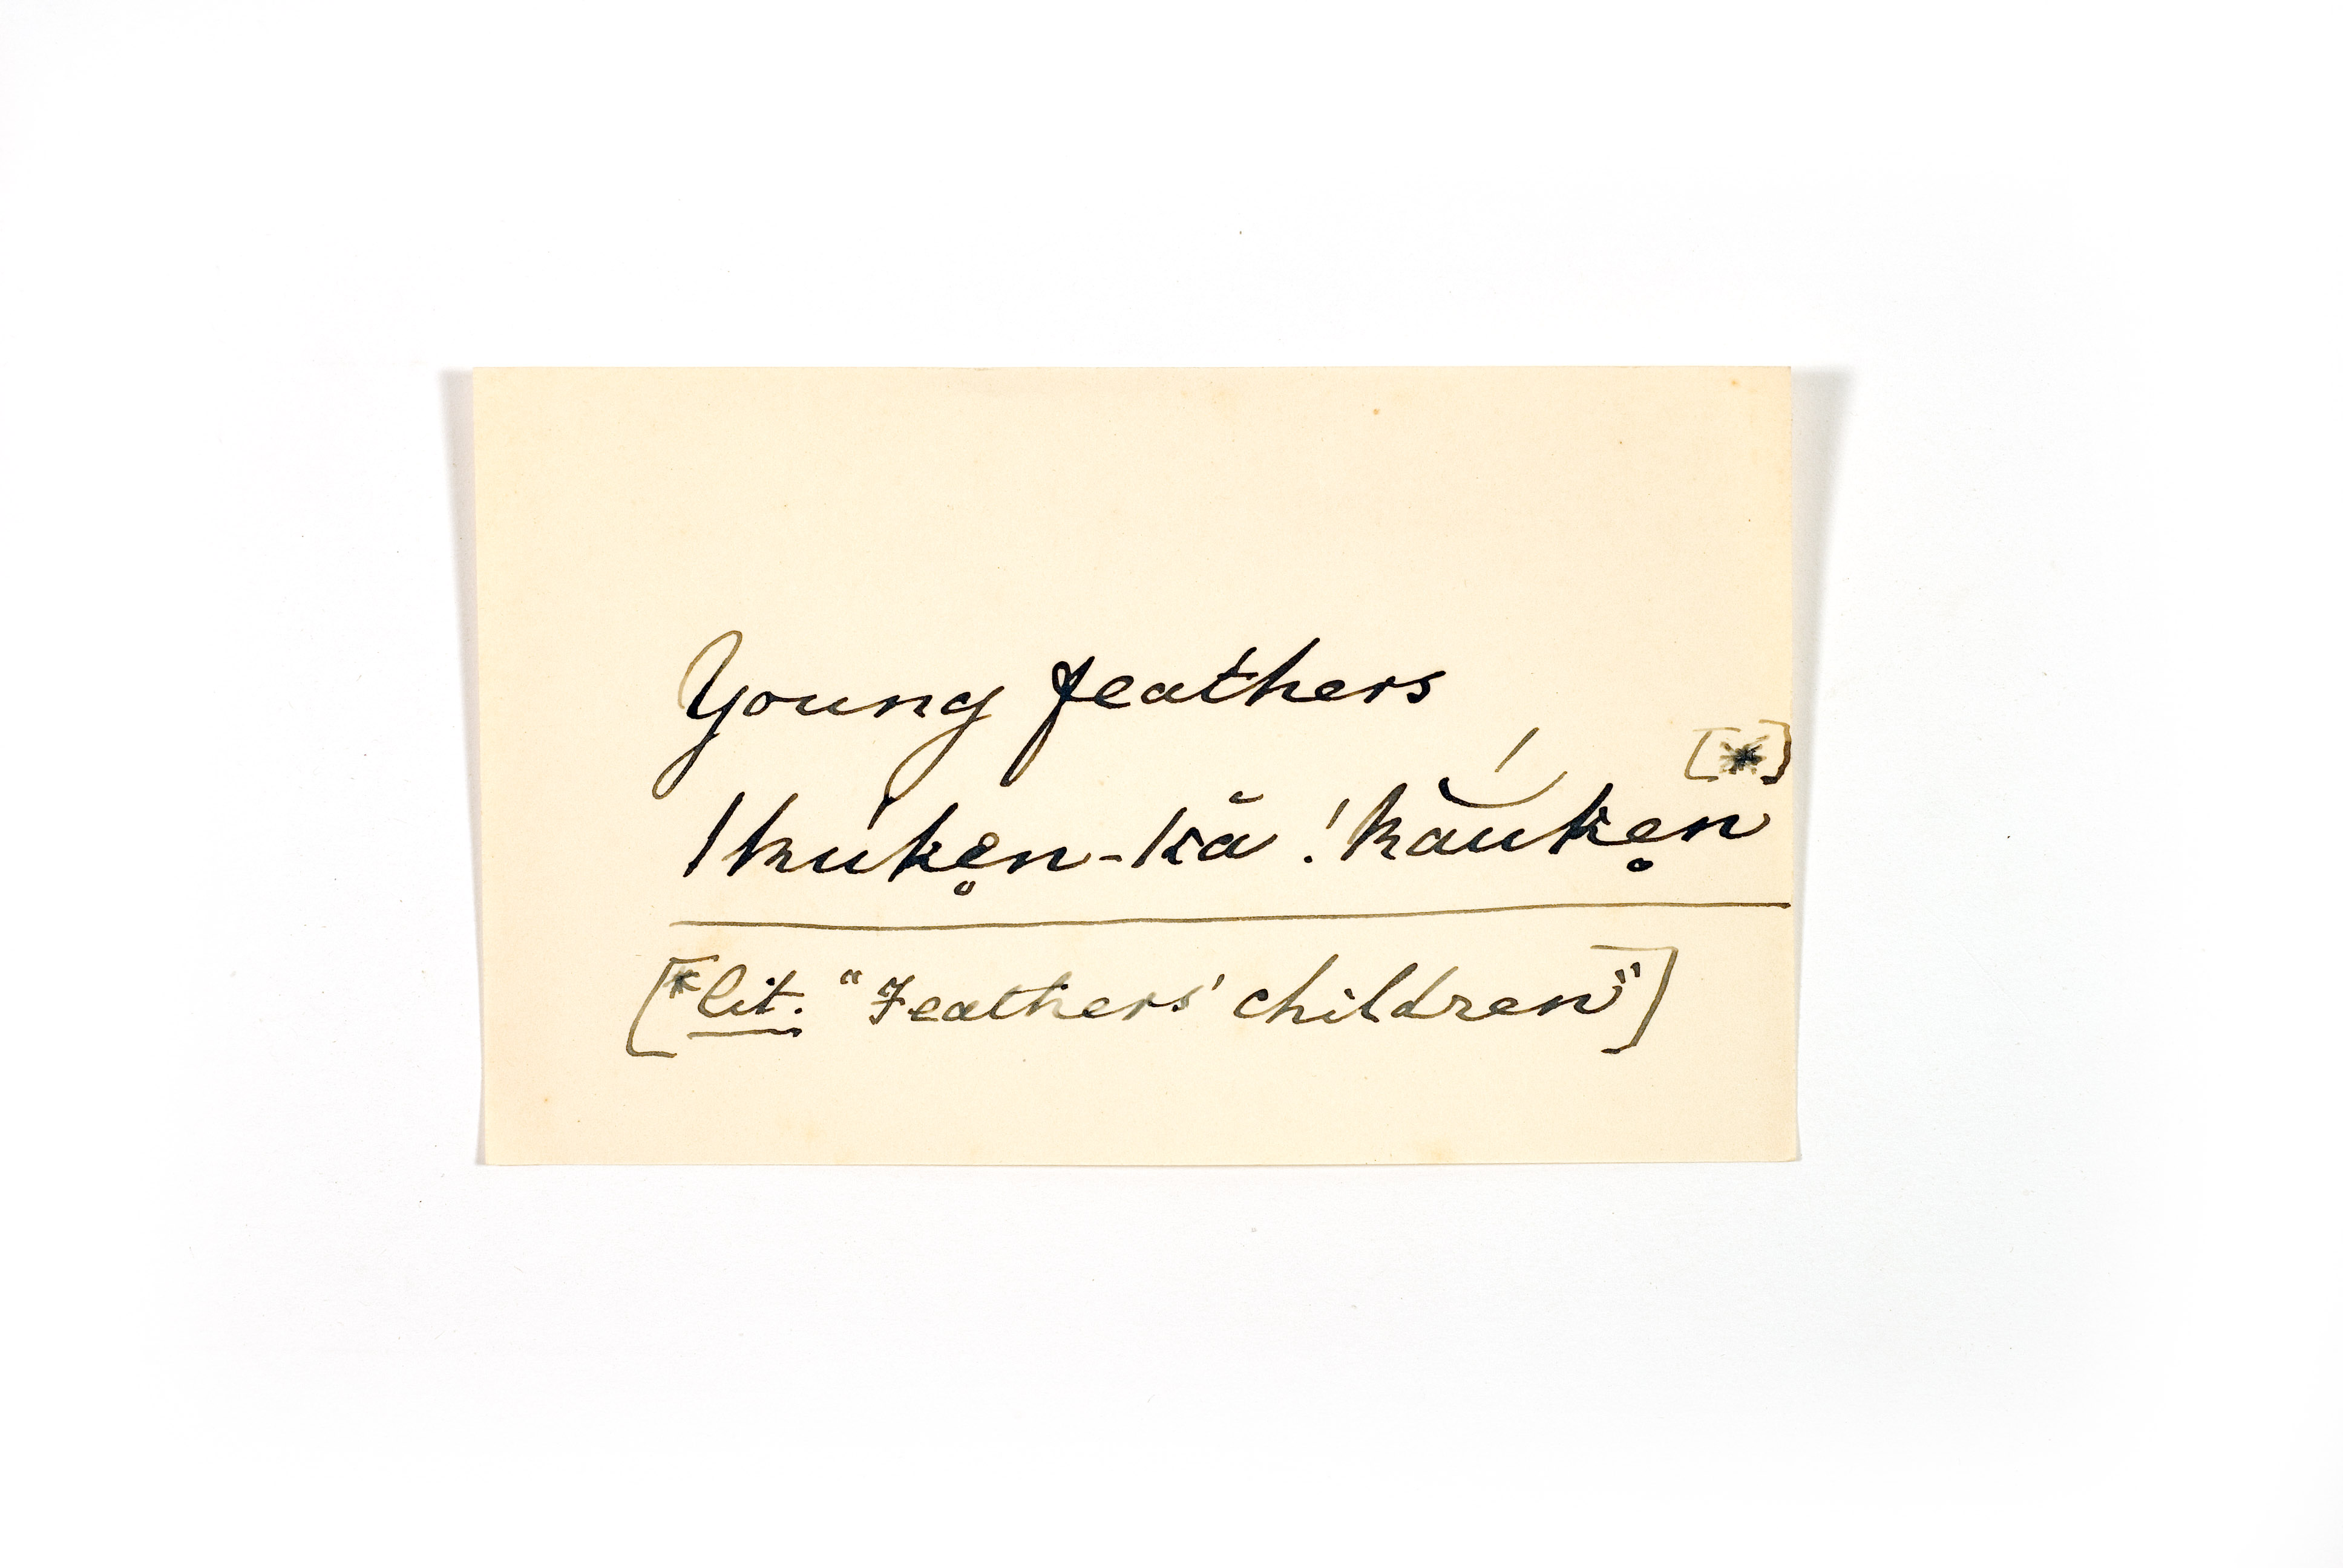 Young feathers
|kúken̥-kă !kăúken̥ [*]
[*lit. "Feathers' children"]